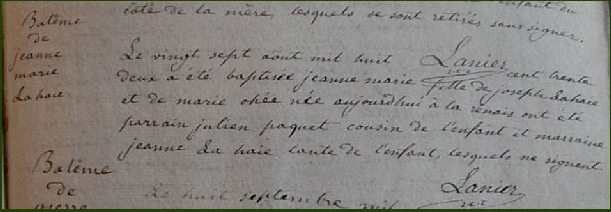 enfant du
côté de la mère, lesquels se sont retirés sans signer.
Lanier
Batême
de
jeanne
marie
Lahaie
Le vingt sept aout mil huit cent trente
deux a été baptisée jeanne marie fille de joseph Lahaie
et de marie ohée née aujourdhui à la renais ont été
parrain julien paquet cousin de l'enfant et marraine
jeanne La haie tante de l'enfant, lesquels ne signent
Lanier
Batême
de
pierre
Le huit septembre mil